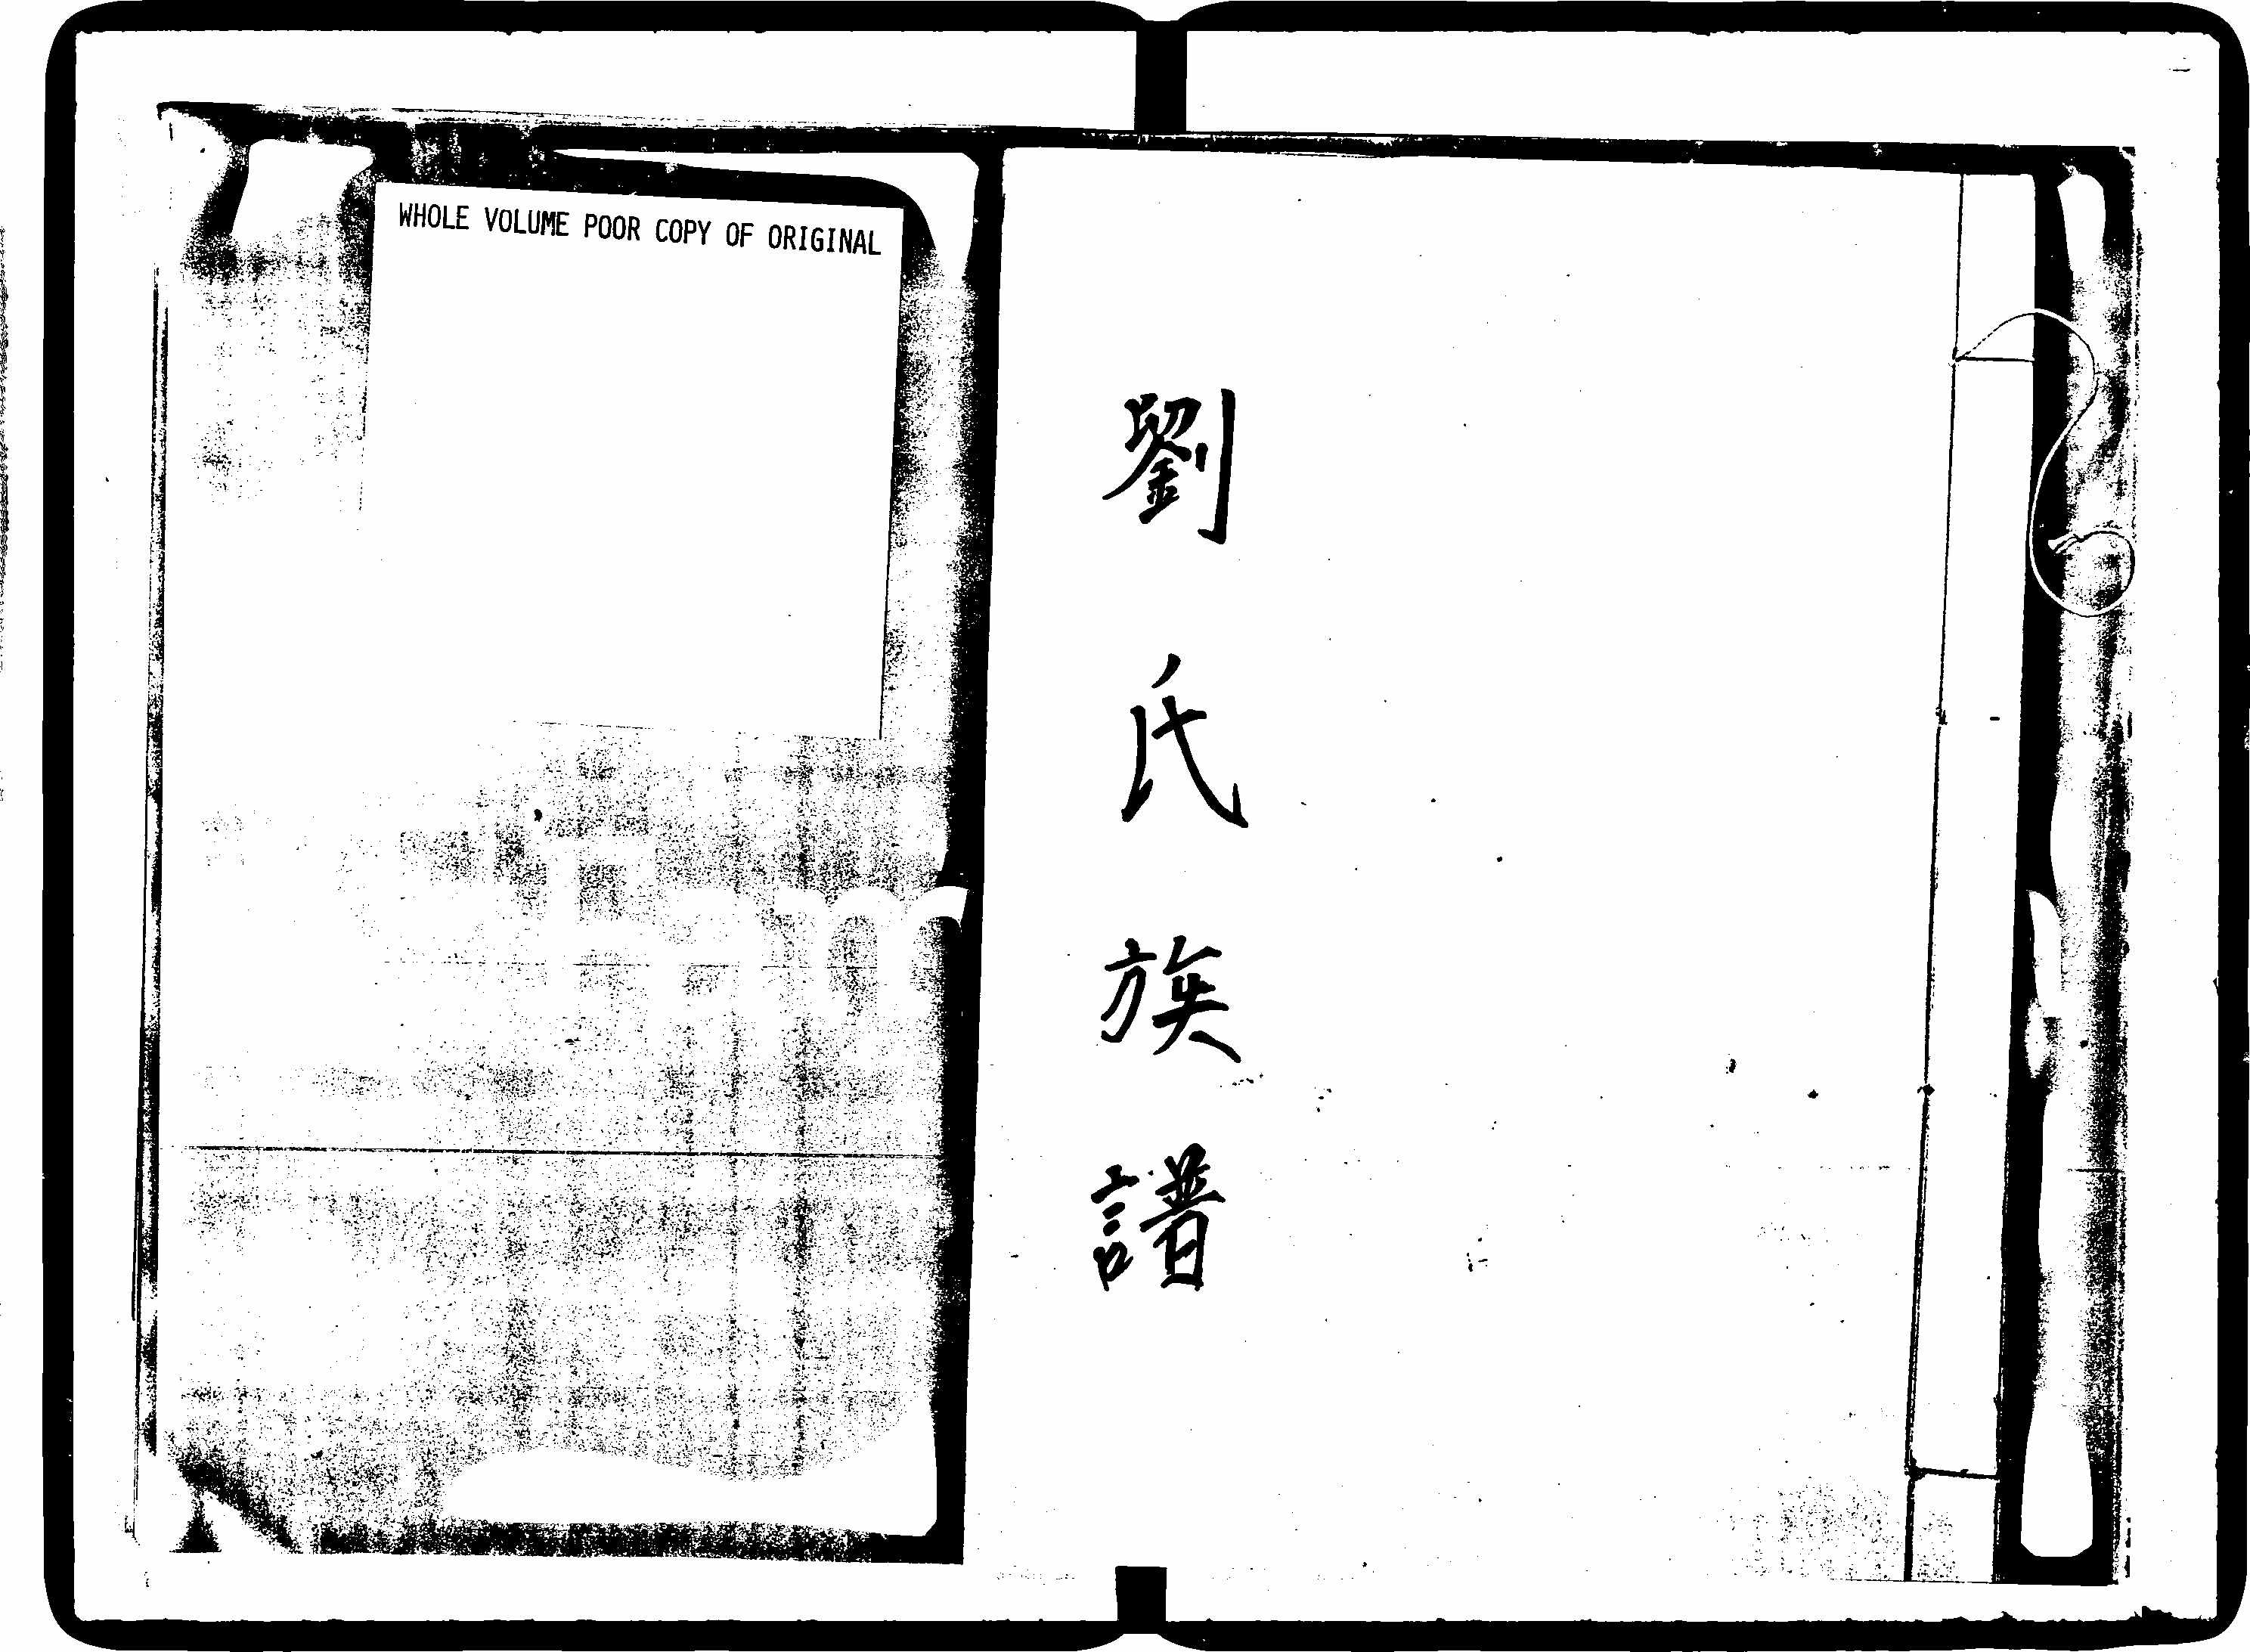 WHOLE VOLUME POOR COPY OF ORIGINAL
劉氏族譜